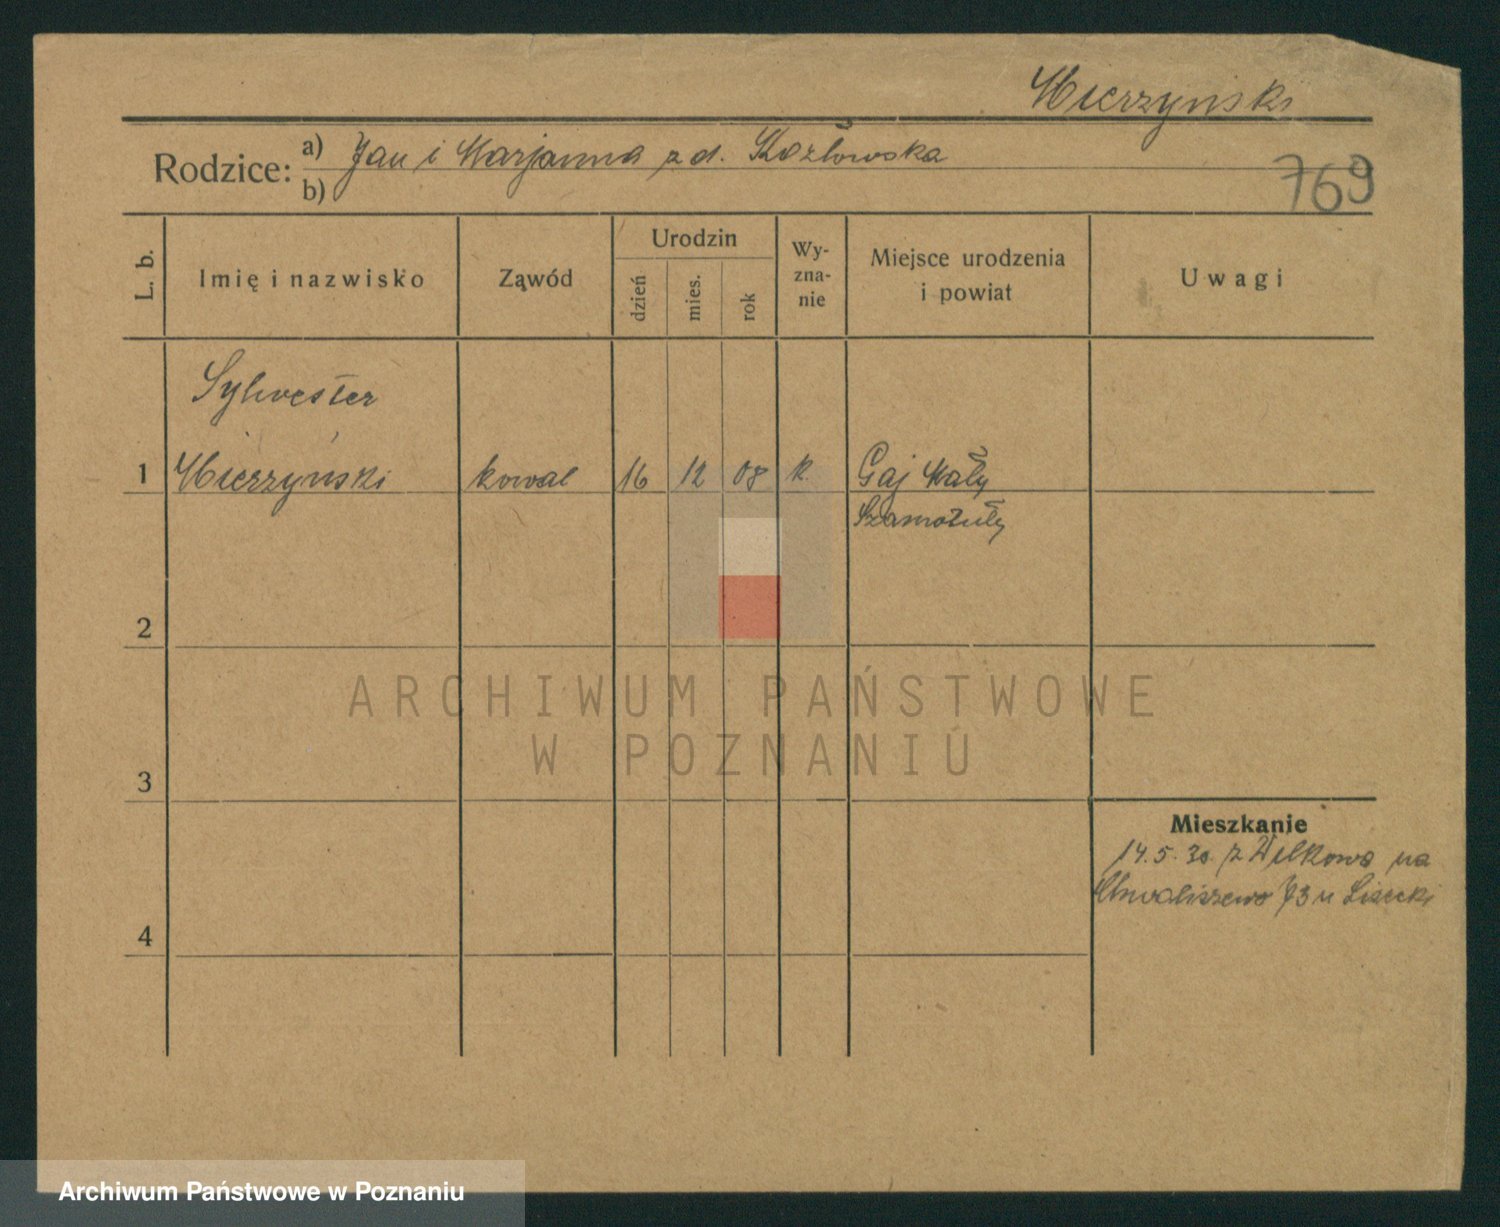 Mierzyński
Rodzice: a) Jan i Marjanna z d. Kozłowska
b)
769
L. b.
Imię i nazwisko
Ząwód
Urodzin
dzień
mies.
rok
Wy-
zna-
nie
Miejsce urodzenia
i powiat
Uwagi
Sylwester
1 Mierzyński kowal 16 12 08 k. Gaj Mały
Szamotuły
2
ARCHIWUM PAŃSTWOWE
W POZNANIU
3
Mieszkanie
14.5.30. z Wilkowa na
Chwaliszewo 73 u Lisecki
4
Archiwum Państwowe w Poznaniu